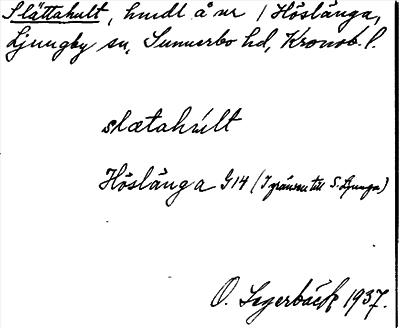 Slättahult, hmdl å nr 1 Höslänga,
Ljungby sn, Sunnerbo hd, Kronob. l.
slætahúlt
Höslänga G14 (I gränsen till S. Ljunga)
O. Segerbäck 1937.